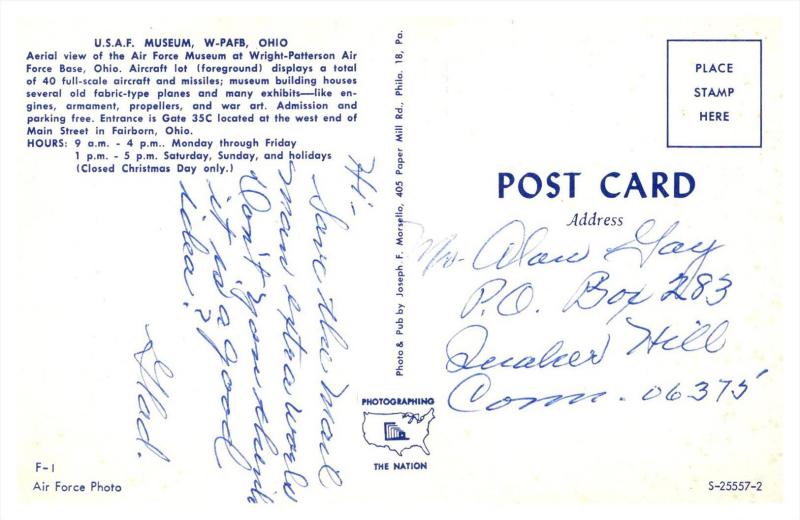 U.S.A.F. MUSEUM, W-PAFB, OHIO
Aerial view of the Air Force Museum at Wright-Patterson Air
Force Base, Ohio. Aircraft lot (foreground) displays a total
of 40 full-scale aircraft and missiles; museum building houses
several old fabric-type planes and many exhibits—like en-
gines, armament, propellers, and war art. Admission and
parking free. Entrance is Gate 35C located at the west end of
Main Street in Fairborn, Ohio.
HOURS: 9 a.m. - 4 p.m.. Monday through Friday
1 p.m. - 5 p.m. Saturday, Sunday, and holidays
(Closed Christmas Day only.)
Hi-
Save the mail
man extra work
Don't you think
it is a good
idea?
Glad.
F-1
Air Force Photo
Photo & Pub by Joseph F. Morsello, 405 Paper Mill Rd., Phila. 18, Pa.
PHOTOGRAPHING
THE NATION
PLACE
STAMP
HERE
POST CARD
Address
Mr. Alan Gay
P.O. Box 283
Quaker Hill
Conn. 06375
S-25557-2